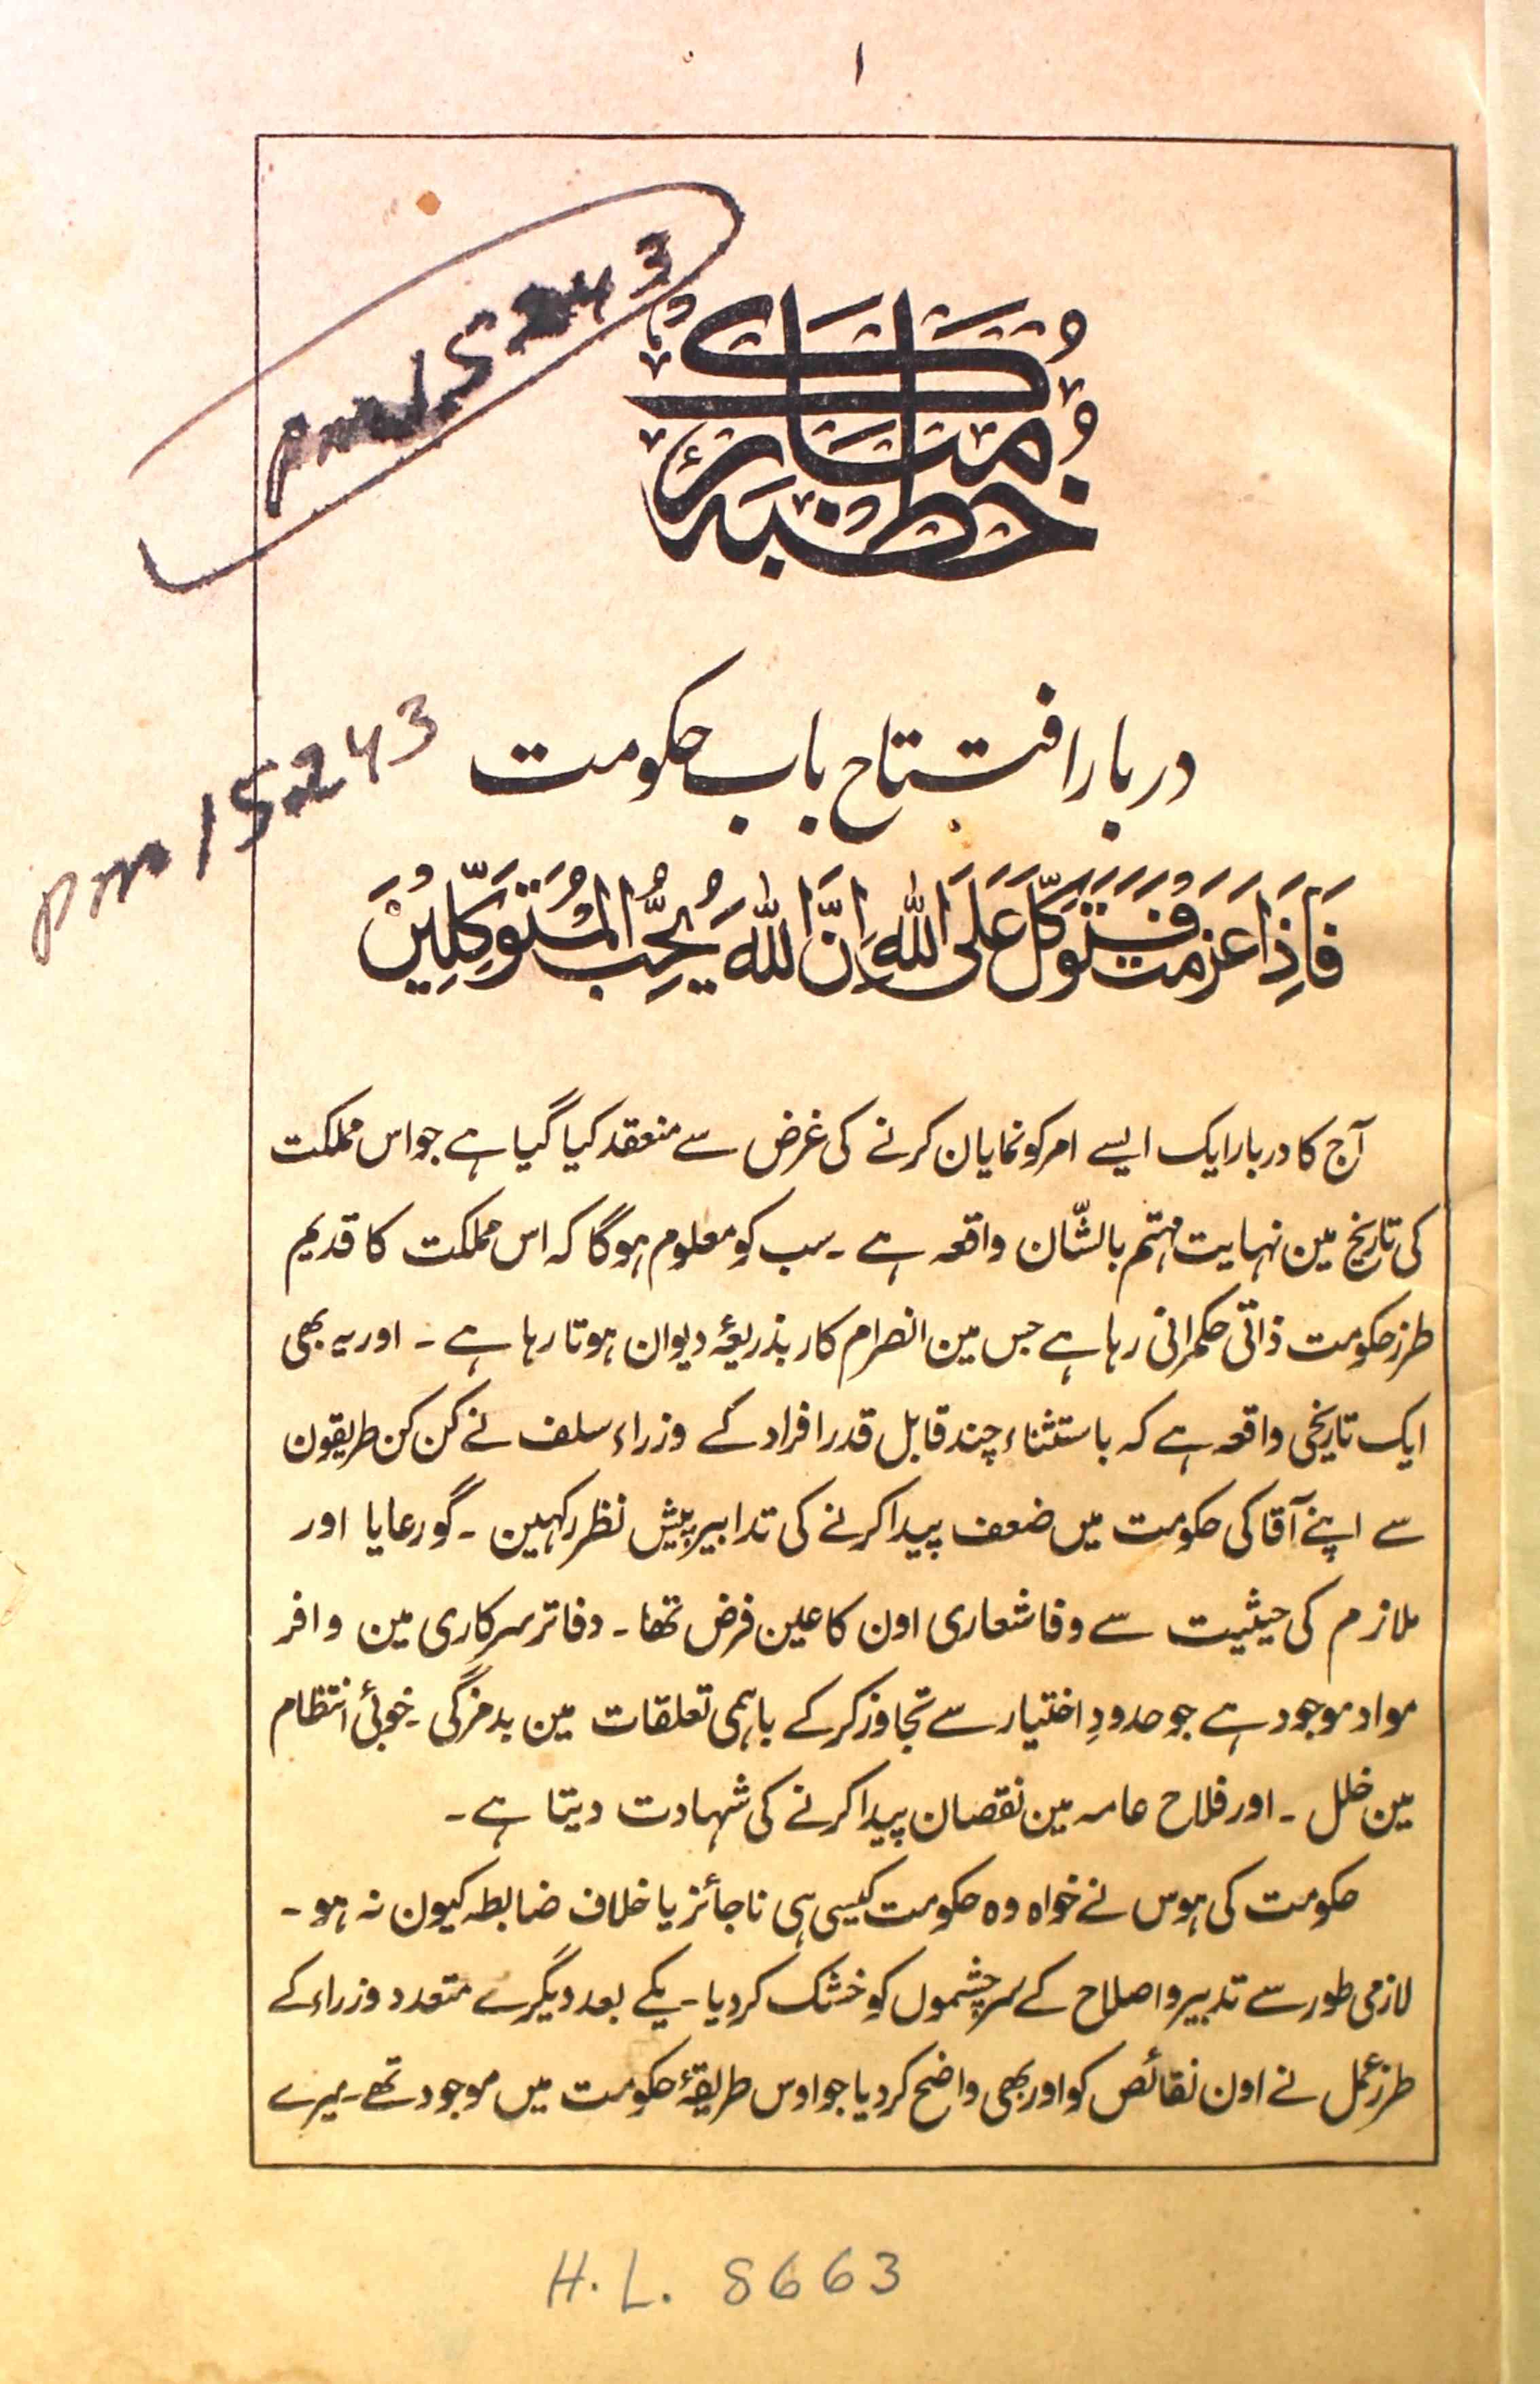 ۱
خطبۂ مبارک
دربار افتتاح باب حکومت
فَاِذَا عَزَمْتَ فَتَوَكَّلْ عَلَى اللّٰهِ اِنَّ اللّٰهَ يُحِبُّ الْمُتَوَكِّلِيْنَ
آج کا دربار ایک ایسے امر کو نمایان کرنے کی غرض سے منعقد کیا گیا ہے جو اس مملکت
کی تاریخ مین نہایت مہتم بالشّان واقعہ ہے ۔ سب کو معلوم ہوگا کہ اس مملکت کا قدیم
طرز حکومت ذاتی حکمرانی رہا ہے جس مین انصرام کار بذریعۂ دیوان ہوتا رہا ہے ۔ اور یہ بھی
ایک تاریخی واقعہ ہے کہ باستثناء چند قابل قدر افراد کے وزراء سلف نے کن کن طریقون
سے اپنے آقا کی حکومت میں ضعف پیدا کرنے کی تدابیر پیش نظر رکہین ۔ گو رعایا اور
ملازم کی حیثیت سے وفا شعاری اون کا عین فرض تھا ۔ دفاتر سرکاری مین وافر
مواد موجود ہے جو حدودِ اختیار سے تجاوز کرکے باہمی تعلقات مین بدمزگی ۔ خوبئ انتظام
مین خلل ۔ اور فلاح عامہ مین نقصان پیدا کرنے کی شہادت دیتا ہے ۔
حکومت کی ہوس نے خواہ وہ حکومت کیسی ہی ناجائز یا خلاف ضابطہ کیون نہ ہو ۔
لازمی طور سے تدبیر و اصلاح کے سرچشموں کو خشک کردیا ۔ یکے بعد دیگرے متعدد وزراء کے
طرز عمل نے اون نقائص کو اور بھی واضح کردیا جو اوس طریقۂ حکومت میں موجود تھے ۔ میرے
Pm 15243
Pm 15243
H.L. 8663